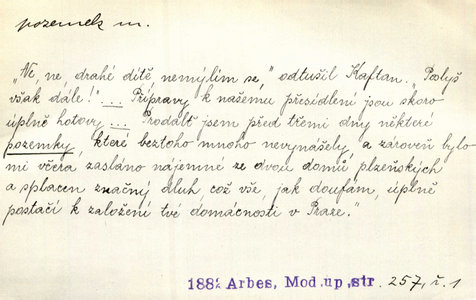 pozemek m.
„Ne, ne, drahé dítě nemýlím se," odtušil Kaftan. „Poslyš
však dále!" ... Přípravy k našemu přesídlení jsou skoro
úplně hotovy ... Prodalť jsem před třemi dny některé
pozemky, které beztoho mnoho nevynášely, a zároveň bylo
mi včera zasláno nájemné ze dvou domů plzeňských
a splacen značný dluh což vše, jak doufám, úplně
postačí k založení tvé domácnosti v Praze."
1882 Arbes, Mod.up,str. 257, č. 1